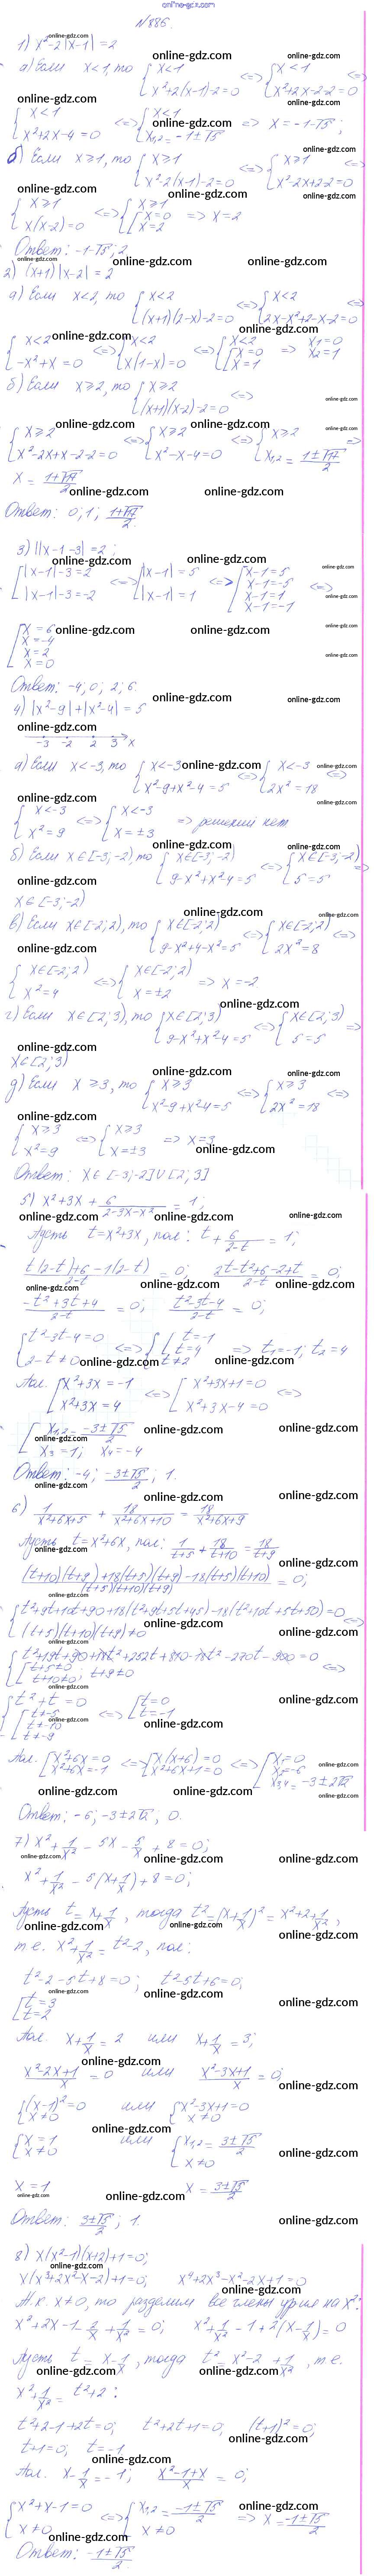 online-gdz.com
№886.
1) x²-2|x-1| = 2
а) Если x<1, то { x<1 <=> { x<1 <=>
x²+2(x-1)-2=0 x²+2x-2-2=0
{ x<1 <=> { x<1 => x = -1-√5 ;
x²+2x-4=0 x₁,₂ = -1±√5
б) Если x≥1, то { x≥1 <=> { x≥1 <=>
x²-2(x-1)-2=0 x²-2x+2-2=0
{ x≥1 <=> { x≥1 => x=2
x(x-2)=0 [ x=0
x=2
Ответ: -1-√5; 2
2) (x+1)|x-2| = 2
а) Если x<2, то { x<2 <=> { x<2
(x+1)(2-x)-2=0 2x-x²+2-x-2=0
{ x<2 <=> { x<2 <=> { x<2 => x₁=0
-x²+x=0 x(1-x)=0 [ x=0 x₂=1
x=1
б) Если x≥2, то { x≥2 <=>
(x+1)(x-2)-2=0
{ x≥2 <=> { x≥2 <=> { x≥2 =>
x²-2x+x-2-2=0 x²-x-4=0 x₁,₂ = 1±√17/2
x = 1+√17/2
Ответ: 0; 1; 1+√17/2.
3) ||x-1|-3| = 2 ;
[ |x-1|-3=2 <=> [ |x-1|=5 <=> [ x-1=5
|x-1|-3=-2 |x-1|=1 x-1=-5 <=>
x-1=1
x-1=-1
[ x=6
x=-4
x=2
x=0
Ответ: -4; 0; 2; 6.
4) |x²-9|+|x²-4| = 5
-3 -2 2 3 x
а) Если x<-3, то { x<-3 <=> { x<-3 <=>
x²-9+x²-4=5 2x²=18
{ x<-3 <=> { x<-3 => решений нет
x²=9 x=±3
б) Если x∈[-3;-2), то { x∈[-3;-2) <=> { x∈[-3;-2) =>
9-x²+x²-4=5 5=5
x∈[-3;-2)
в) Если x∈[-2;2), то { x∈[-2;2) <=> { x∈[-2;2) <=>
9-x²+4-x²=5 2x²=8
{ x∈[-2;2) <=> { x∈[-2;2) => x=-2
x²=4 x=±2
г) Если x∈[2;3), то { x∈[2;3) <=> { x∈[2;3) =>
9-x²+x²-4=5 5=5
x∈[2;3)
д) Если x≥3, то { x≥3 <=> { x≥3 <=>
x²-9+x²-4=5 2x²=18
{ x≥3 <=> { x≥3 => x=3
x²=9 x=±3
Ответ: x∈[-3;-2]∪[2;3]
5) x²+3x + 6/2-3x-x² = 1;
Пусть t=x²+3x, пол: t + 6/2-t = 1;
t(2-t)+6-1(2-t)/2-t = 0; 2t-t²+6-2+t/2-t = 0;
-t²+3t+4/2-t = 0; t²-3t-4/2-t = 0;
{ t²-3t-4=0 <=> { [ t=-1 => t₁=-1; t₂=4
2-t≠0 t=4
t≠2
Пол. [ x²+3x=-1 <=> [ x²+3x+1=0 <=>
x²+3x=4 x²+3x-4=0
[ x₁,₂ = -3±√5/2
x₃=1; x₄=-4
Ответ: -4; -3±√5/2; 1.
6) 1/x²+6x+5 + 18/x²+6x+10 = 18/x²+6x+9
Пусть t=x²+6x, пол: 1/t+5 + 18/t+10 = 18/t+9
(t+10)(t+9)+18(t+5)(t+9)-18(t+5)(t+10)/(t+5)(t+10)(t+9) = 0;
{ t²+9t+10t+90+18(t²+9t+5t+45)-18(t²+10t+5t+50)=0 <=>
(t+5)(t+10)(t+9)≠0
{ t²+19t+90+18t²+252t+810-18t²-270t-900=0
[ t+5≠0 <=>
t+10≠0; t+9≠0
{ t²+t=0 <=> [ t=0
[ t≠-5 t=-1
t≠-10
t≠-9
Пол. [ x²+6x=0 <=> [ x(x+6)=0 <=> [ x₁=0
x²+6x=-1 x²+6x+1=0 x₂=-6
x₃,₄ = -3±2√2
Ответ: -6; -3±2√2; 0.
7) x²+1/x² - 5x - 5/x + 8 = 0;
x²+1/x² - 5(x+1/x)+8=0;
Пусть t=x+1/x, тогда t²=(x+1/x)²=x²+2+1/x²,
т.е. x²+1/x²=t²-2, пол:
t²-2-5t+8=0; t²-5t+6=0;
[ t=3
t=2
Пол. x+1/x=2 или x+1/x=3;
x²-2x+1/x = 0 или x²-3x+1/x = 0;
{ (x-1)²=0 или { x²-3x+1=0
x≠0 x≠0
{ x=1 или { x₁,₂ = 3±√5/2
x≠0 x≠0
x=1 x = 3±√5/2
Ответ: 3±√5/2; 1.
8) x(x²-1)(x+2)+1=0;
x(x³+2x²-x-2)+1=0; x⁴+2x³-x²-2x+1=0
Т.к. x≠0, то разделим все члены ур-ия на x²:
x²+2x-1-2/x+1/x²=0; x²+1/x²-1+2(x-1/x)=0
Пусть t=x-1/x, тогда t²=x²-2+1/x², т.е.
x²+1/x²=t²+2:
t²+2-1+2t=0; t²+2t+1=0; (t+1)²=0;
t+1=0; t=-1
Пол. x-1/x=-1; x²-1+x/x = 0;
{ x²+x-1=0 <=> { x₁,₂ = -1±√5/2 => x = -1±√5/2
x≠0 x≠0
Ответ: -1±√5/2